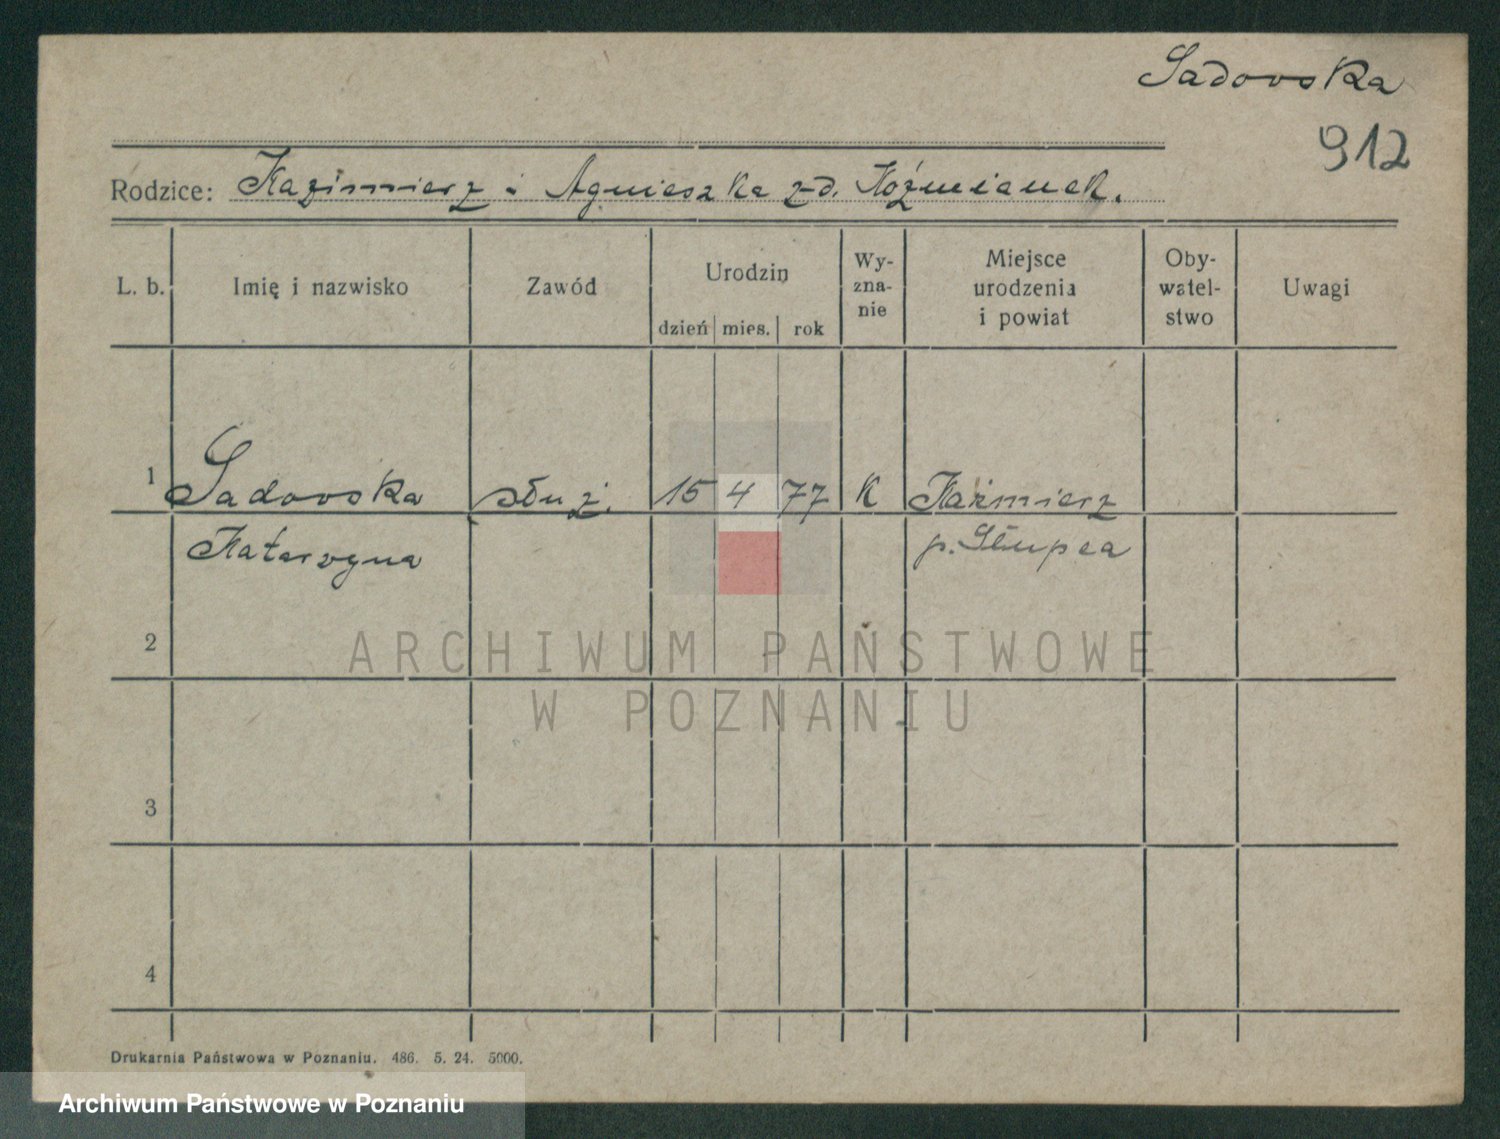 Sadowska
912
Rodzice: Kazimierz i Agnieszka z d. Koźmianek.
L. b. Imię i nazwisko Zawód Urodzin dzień mies. rok Wy-zna-nie Miejsce urodzenia i powiat Oby-watel-stwo Uwagi
1 Sadowska służ. 15 4 77 K Kaźmierz
Katarzyna p. Słupca
2
ARCHIWUM PAŃSTWOWE
W POZNANIU
3
4
Drukarnia Państwowa w Poznaniu. 486. 5. 24. 5000.
Archiwum Państwowe w Poznaniu